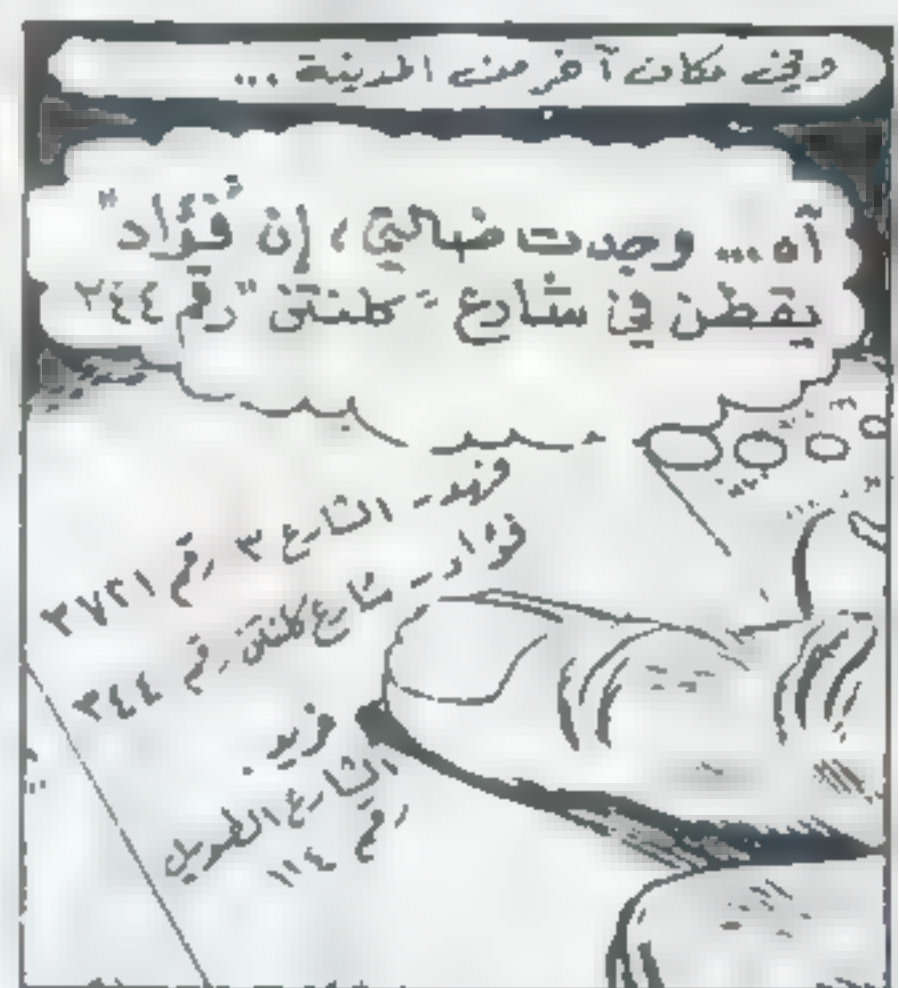 وفي مكان آخر من المدينة ...
آه ... وجدت ضالتي ، إن "فؤاد"
يقطن في شارع "كلنتن" رقم ٣٤٤
فهد - الشارع ٣ رقم ٣٧٢١
فؤاد - شارع كلنتن رقم ٣٤٤
فريد .
الشارع الطويل
رقم ١١٤